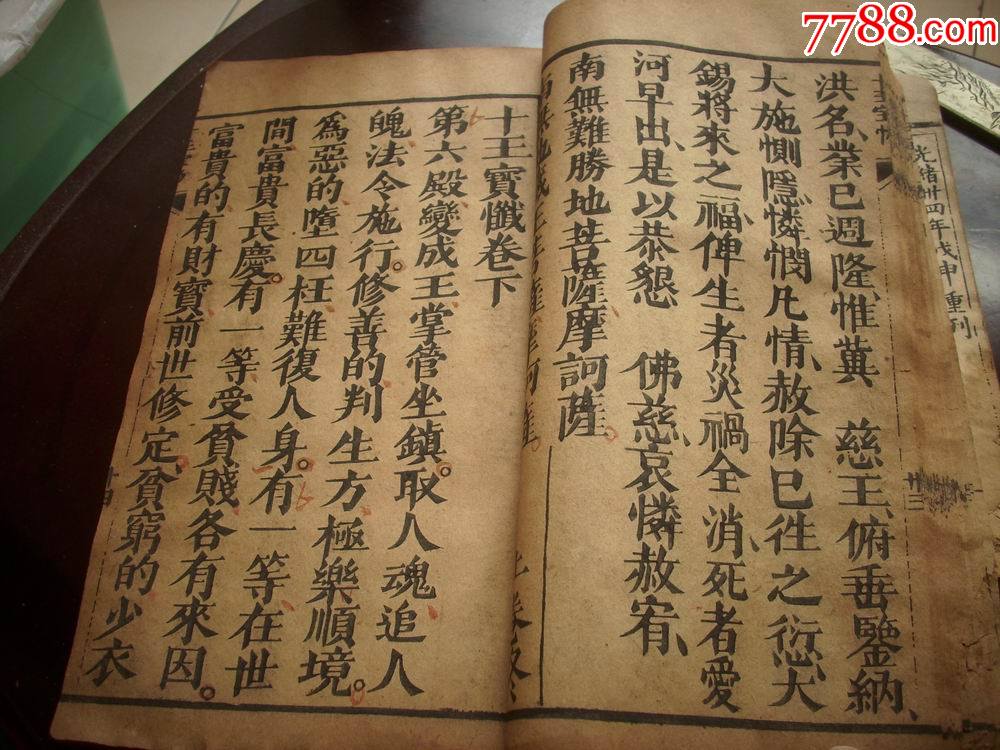 7788.com
中国收藏热线
光緒卅四年戊申重刊
洪名、棠已週隆、惟冀　慈王、俯垂鑒納、
大施惻隱、憐憫凡情、赦除已徃之衍、大
錫將來之福、俾生者災禍全消、死者愛
河早出、是以恭懇　佛慈、哀憐赦宥、
南無難勝地菩薩摩訶薩。
十王寶懺卷下
第六殿、變成王、掌管坐鎮。取人魂、追人
魄、法令施行。修善的、判生方、極樂順境。
為惡的、墮四枉、難復人身。有一等、在世
間、富貴長慶。有一等、受貧賤、各有來因。
富貴的、有財寶、前世修定、貧窮的、少衣